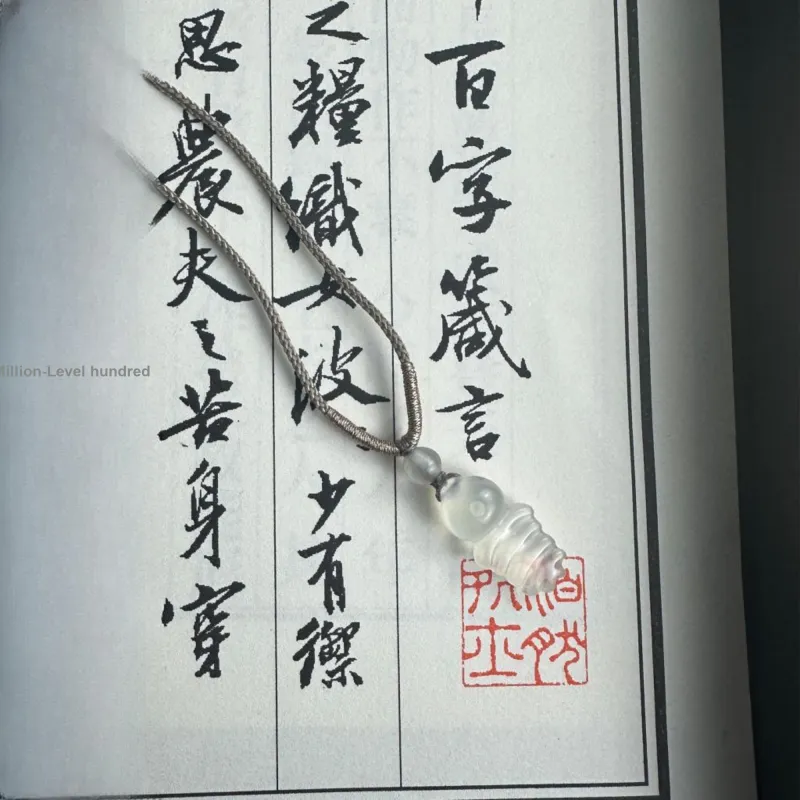 百字箴言
之糧織女波少有禦
思農夫之苦身穿
Million-Level hundred